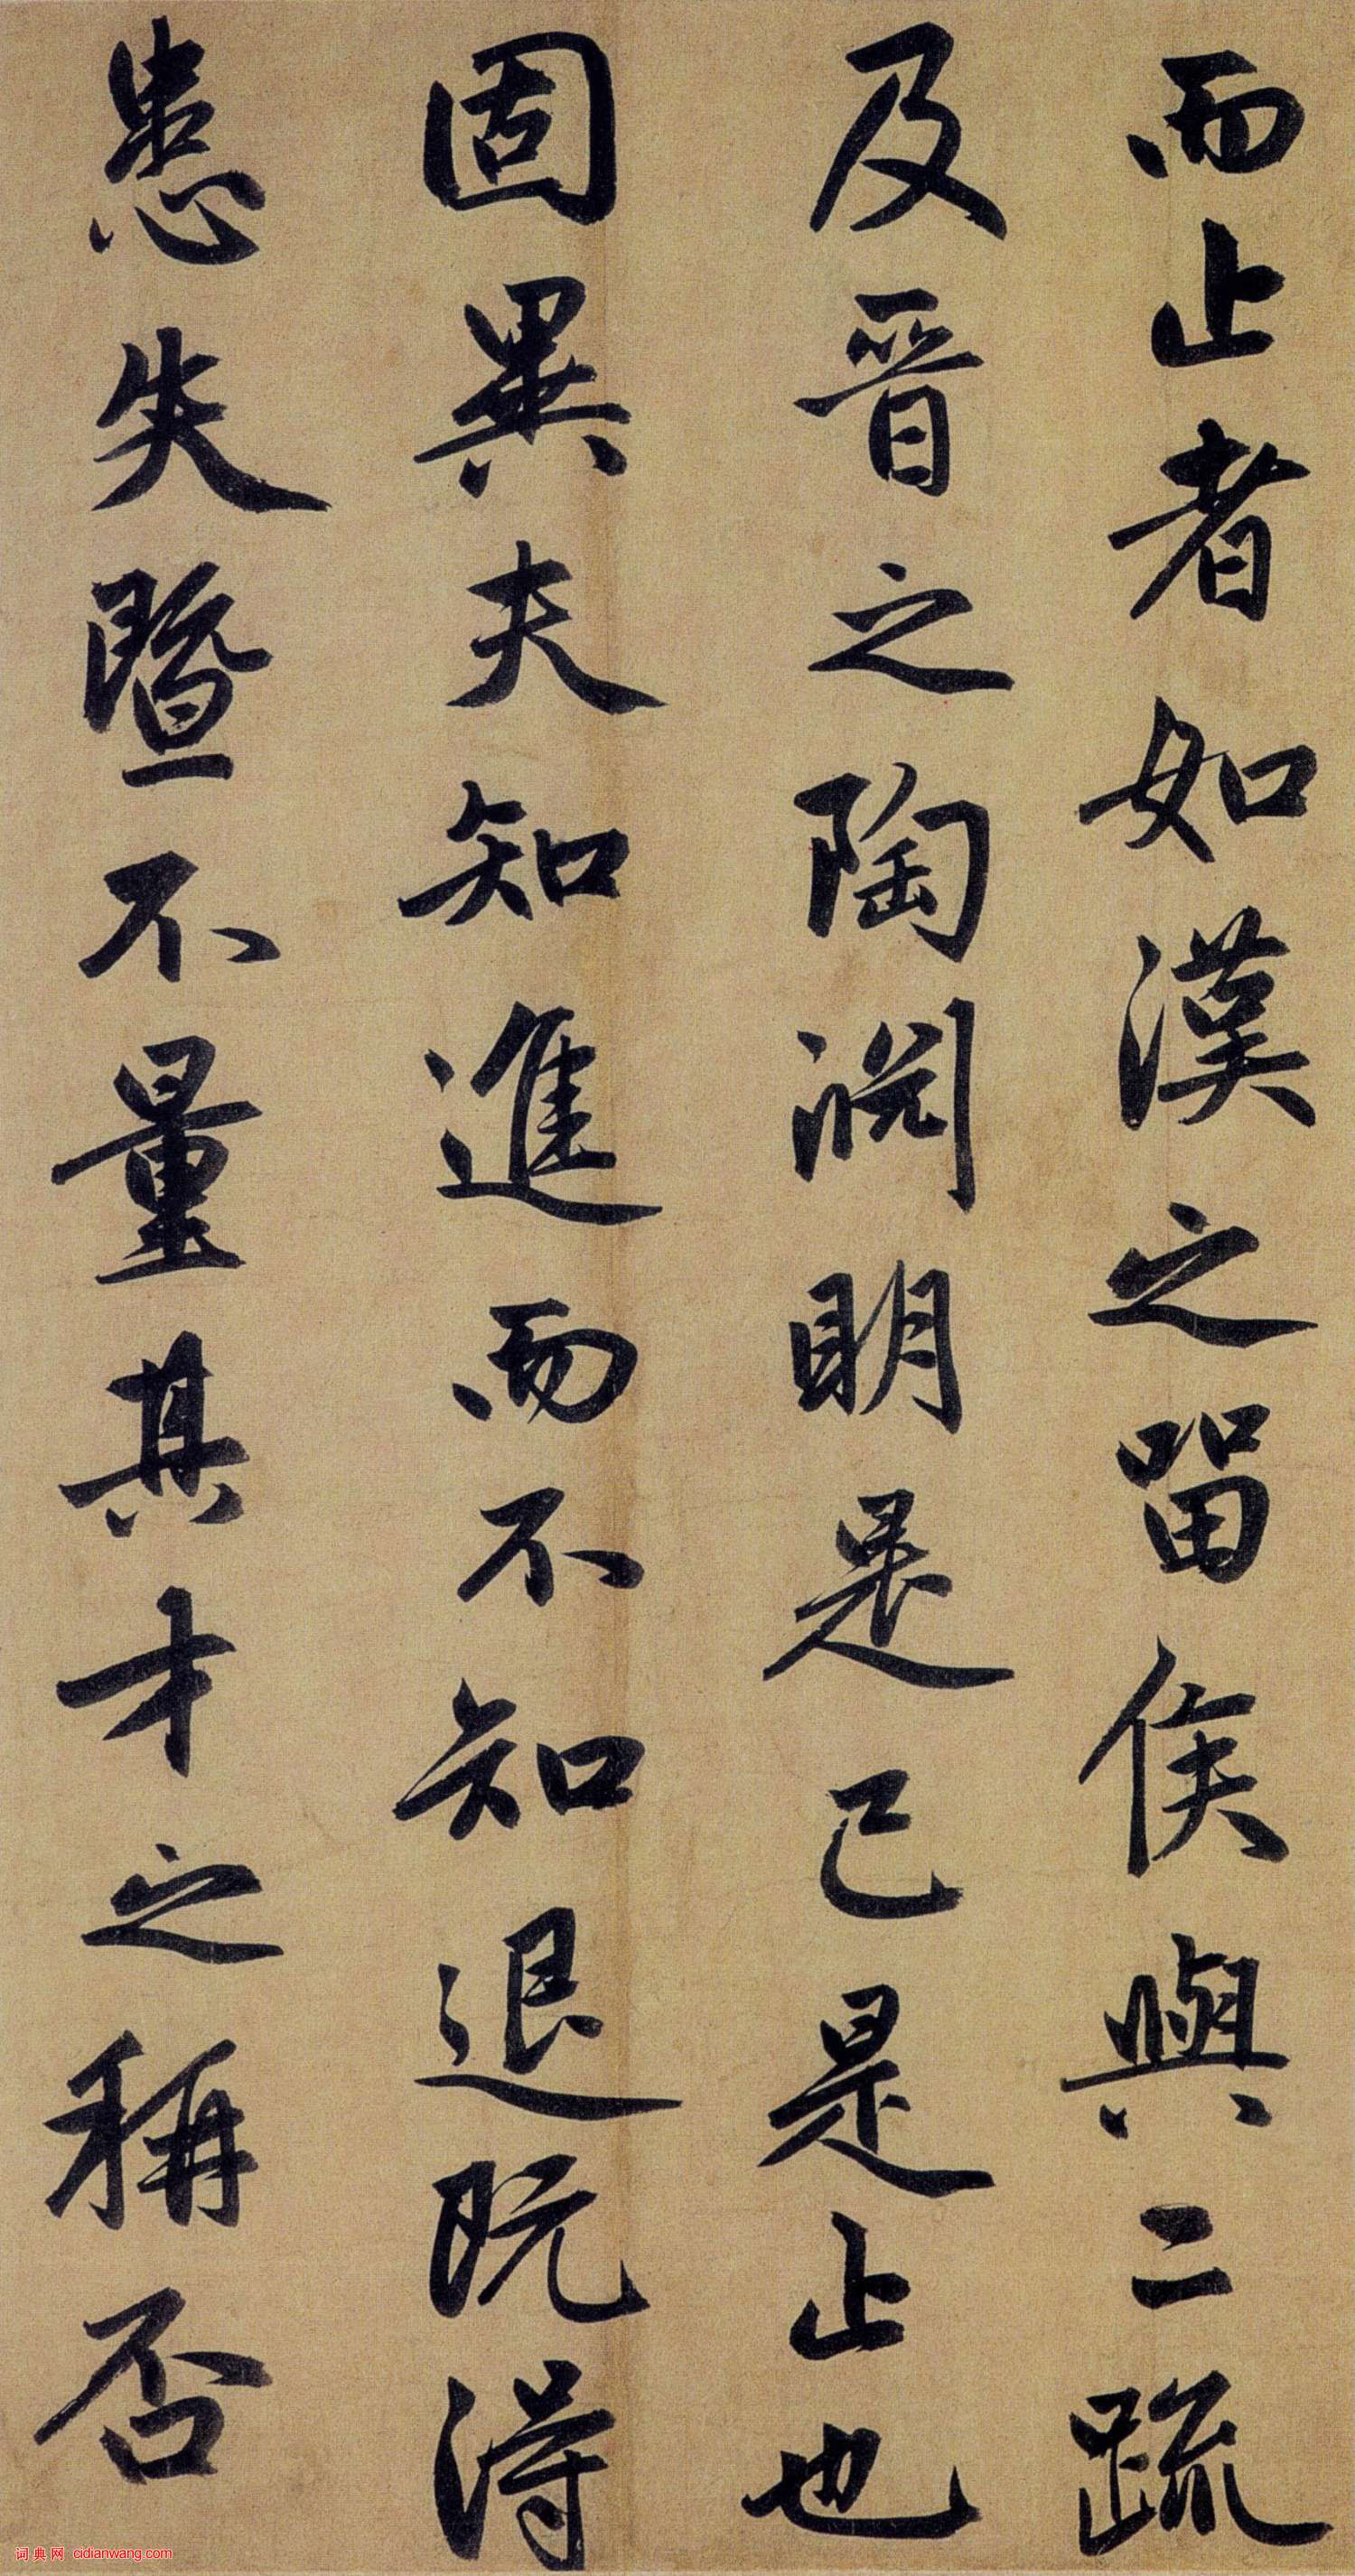 而止者如漢之留侯與二疏
及晉之陶淵明是已是止也
固異夫知進而不知退既得
患失暨不量其才之稱否
词典网 cidianwang.com